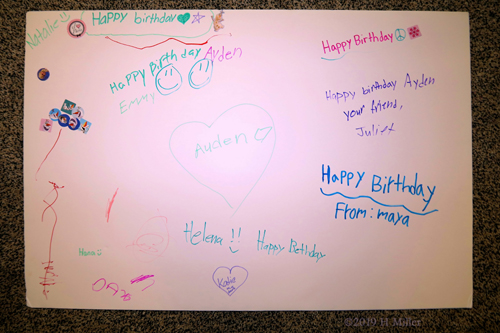 Natalie
HAPPY birthday
HAPPY Birthday Ayden
Emmy
Happy Birthday
Happy birthday Ayden
your friend,
Juliet
Ayden
Happy Birthday
From: maya
Helena !! Happy Birthday
Hana
Katie